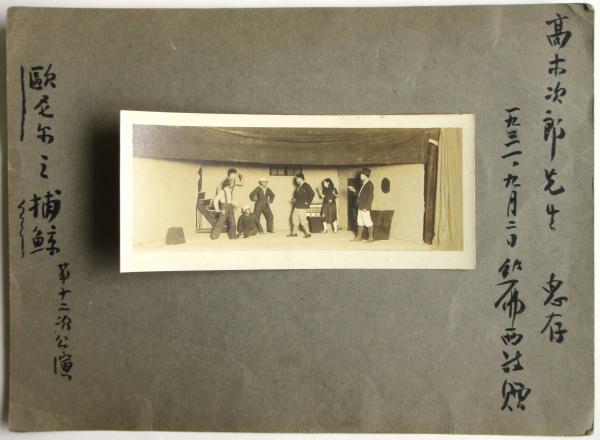 高木次郎先生 惠存
一九三一・九月二日 熊佛西 贈
歐尼尔之捕鯨
第十二次公演